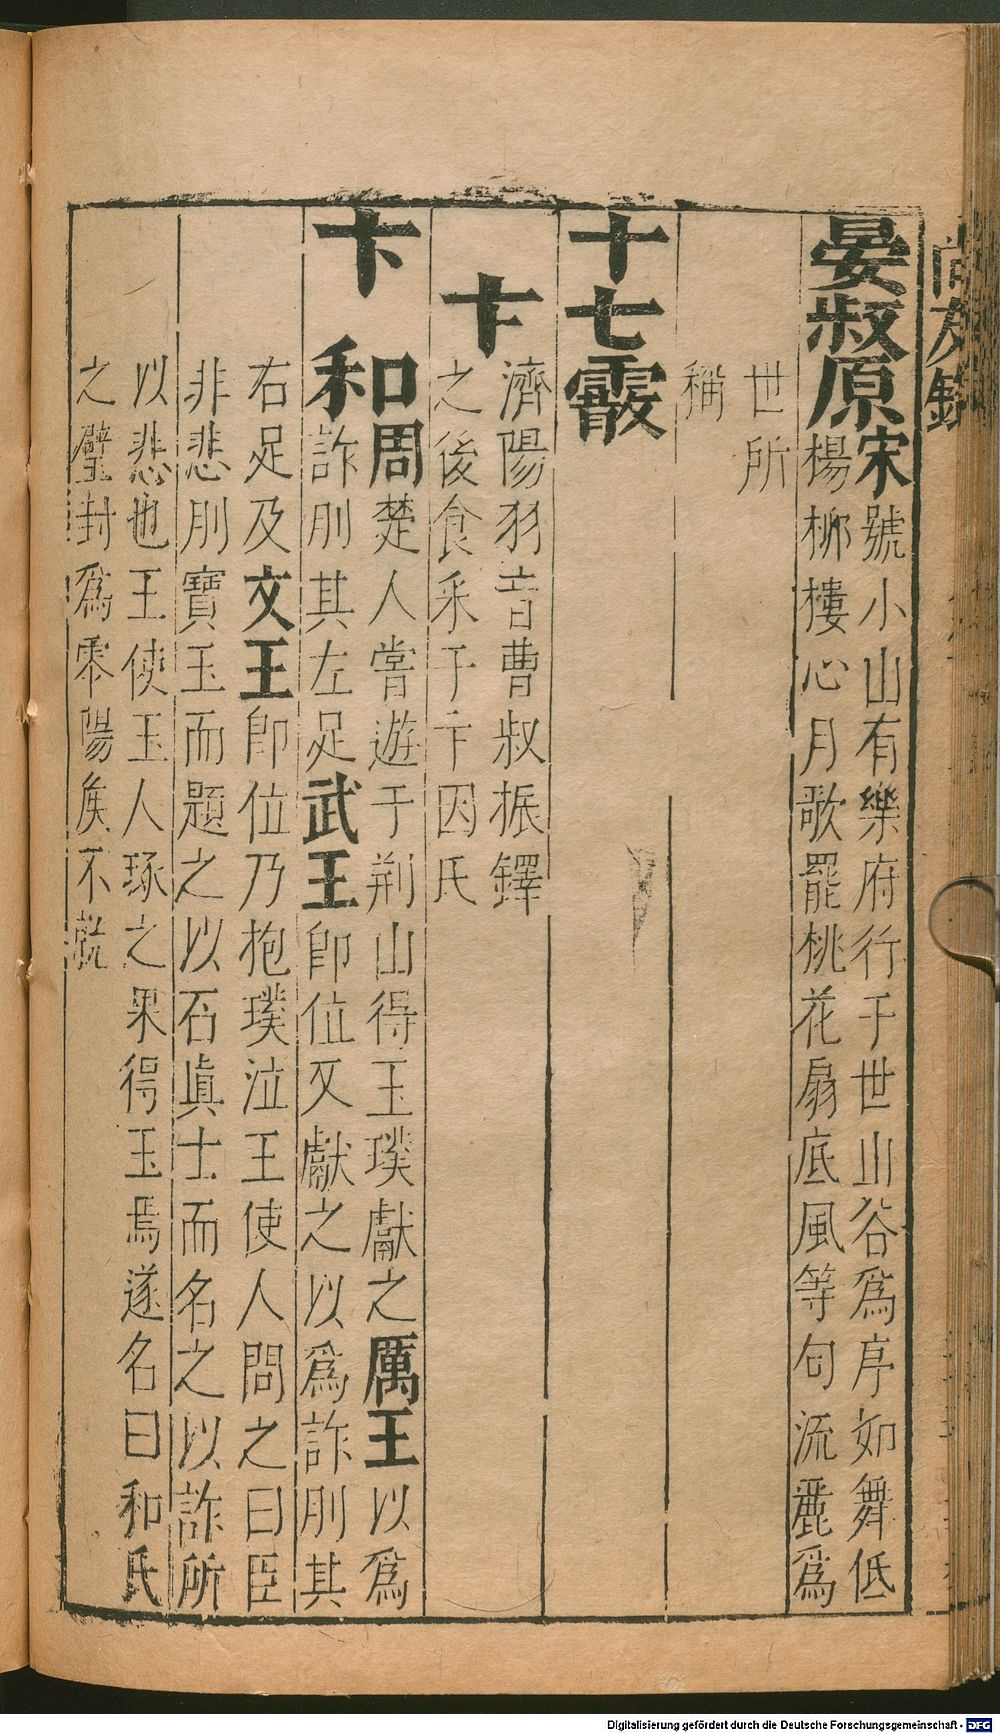 晏叔原宋號小山有樂府行于世山谷爲序如舞低
楊柳樓心月歌罷桃花扇底風等句流麗爲
世所
稱
十七霰
卞
濟陽羽音曹叔振鐸
之後食采于卞因氏
卞和周楚人嘗遊于荆山得玉璞獻之厲王以爲
詐刖其左足武王卽位又獻之以爲詐刖其
右足及文王卽位乃抱璞泣王使人問之曰臣
非悲刖寶玉而題之以石眞士而名之以詐所
以悲也王使玉人琢之果得玉焉遂名曰和氏
之璧封爲零陽矦不就
尚友錄
Digitalisierung gefördert durch die Deutsche Forschungsgemeinschaft - DFG